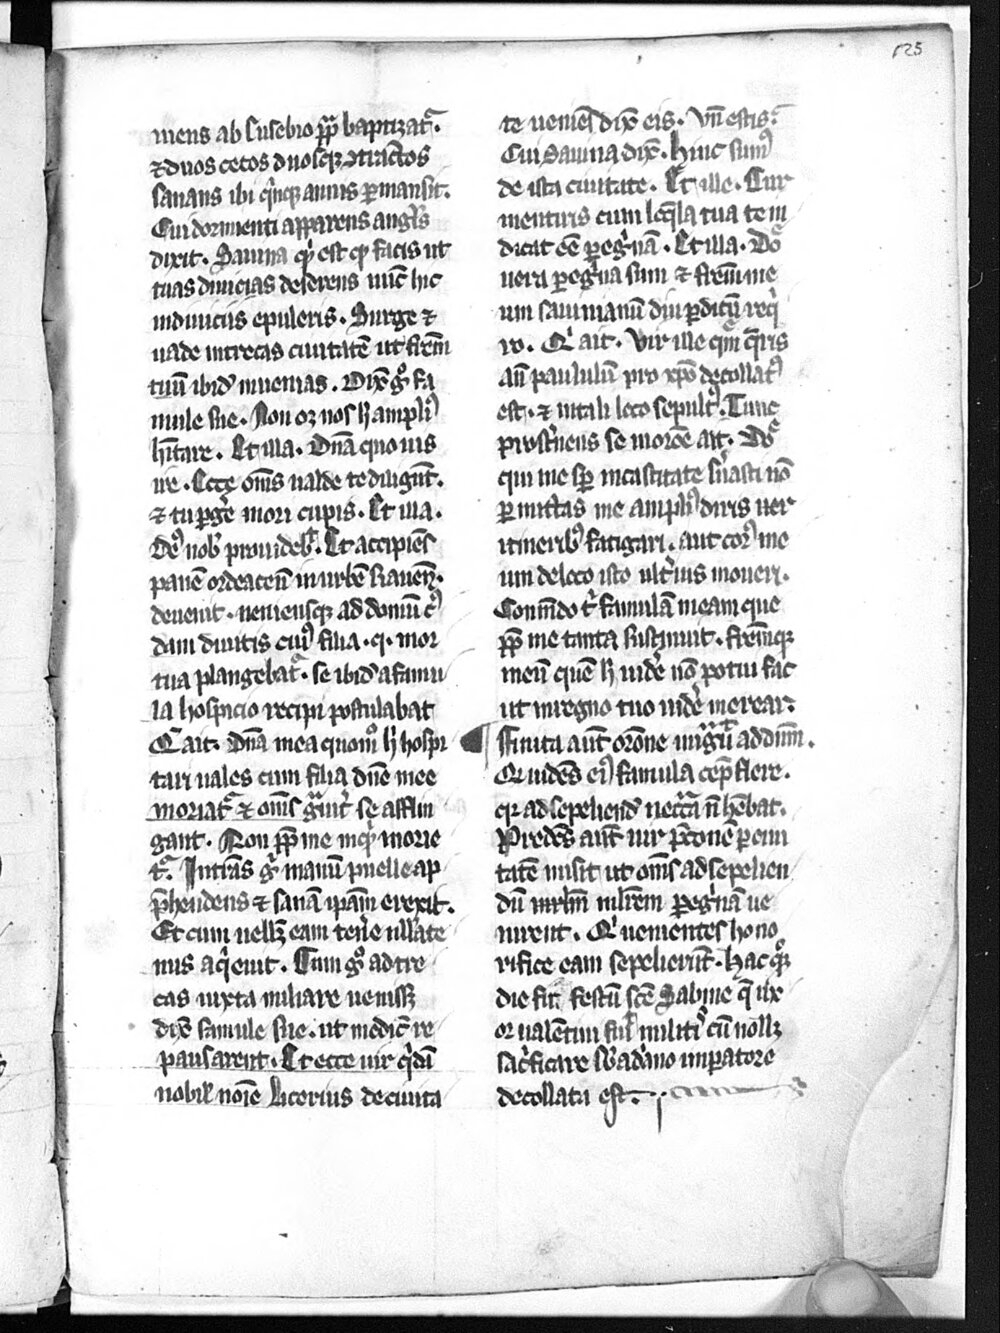 125
niens ab Eusebio pp̄ baptizat᷑.
⁊ duos cecos duosq; ↄtractos
sanans ibi q̇nq; annis ꝑmansit.
Cui dormienti apparens angl̄s
dixit. Sauina qͥ est ꝙ facis ut
tuas diuicias deserens nūc hic
in diuiciis epuleris. Surge ⁊
uade in trecas ciuitatē ut fr̄em
tuū ibid̄ inuenias. Dix̄ gͦ fa
mule sue. Non oꝫ nos h̄ ampliꝰ
h̄itare. Et illa. Dn̄a quo uis
ire. Ecce om̄s ualde te diligūt.
⁊ tu ꝑgē mori cupis. Et illa.
Deꝰ nob̄ prouideb̄. Et accipiēs
panē ordeaceū in urbē Rauen̄.
deuenit. ueniensq; ad domū cͥ
dam diuitis cuiꝰ filia .q. mor
tua plangebat᷑. se ibid̄ a famu
la hospicio recipi postulabat
Q̄ ait. Dn̄a mea quom̊ h̄ hospi
tari uales cum filia dn̄e mee
moriat᷑ ⁊ om̄s gͣuit᷑ se afflin
gant. Non pp̄ me inqͥ morie
t᷑. Intrās gͦ manū puelle ap
p̄hendens ⁊ sanā ip̄am erexit.
Et cum uellꝫ eam tenēe ullate
nus aq̇euit. Cum gͦ ad tre
cas iuxta miliare uenissꝫ
dix̄ famule sue. ut modic̄ re
pausarent. Et ecce uir q̇dā
nobil̓ noīe Licerius de ciuita
te ueniēs dix̄ eis. Vn̄ estis.
Cui Sauina dix̄. Hinc sumꝰ
de ista ciuitate. Et ille. Cur
mentiris cum loq̄la tua te in
dicat eē ꝑegͥnā. Et illa. Dō
uera ꝑegͥna sum ⁊ fr̄em me
um sauinianū diu ꝑditū reqͥ
ro. Qͥ ait. Vir ille quē q̄ris
an̄ paululū pro xp̄o decollatꝰ
est. ⁊ in tali loco sepultꝰ. Tunc
prost̓nens se in or̄oe ait. Dō
qui me sꝑ in castitate s̓uasti nō
ꝑmittas me ampliꝰ duris uer
itineribꝰ fatigari. aut corꝰ me
um de loco isto ult̓ius moueri.
Com̄do tͥ famulā meam que
pp̄ me tanta sustinuit. fr̄emq;
meū quē h̄ uidē nō potui fac
ut in regno tuo uidē merear.
Finita aūt or̄one mīgͣuit ad dn̄m.
Qͥ uidēs eiꝰ famula cep̄ flere.
qͥ ad sepeliend̄ necc̄ia n̄ hēbat.
Predēs aūt uir p̄conē ꝑ ciui
tatē misit ut om̄s ad sepelien
dū ml̓rem ꝑegͥnā ue
nirent. Qͥ uenientes hono
rifice eam sepelierūt. Hac qͦꝫ
die fit festū sc̄e Sabine q̄ ux
or ualentini fuͥt militͥ cū nollꝫ
sac͛ficare sb̄ adͥano imp̄atore
decollata est.